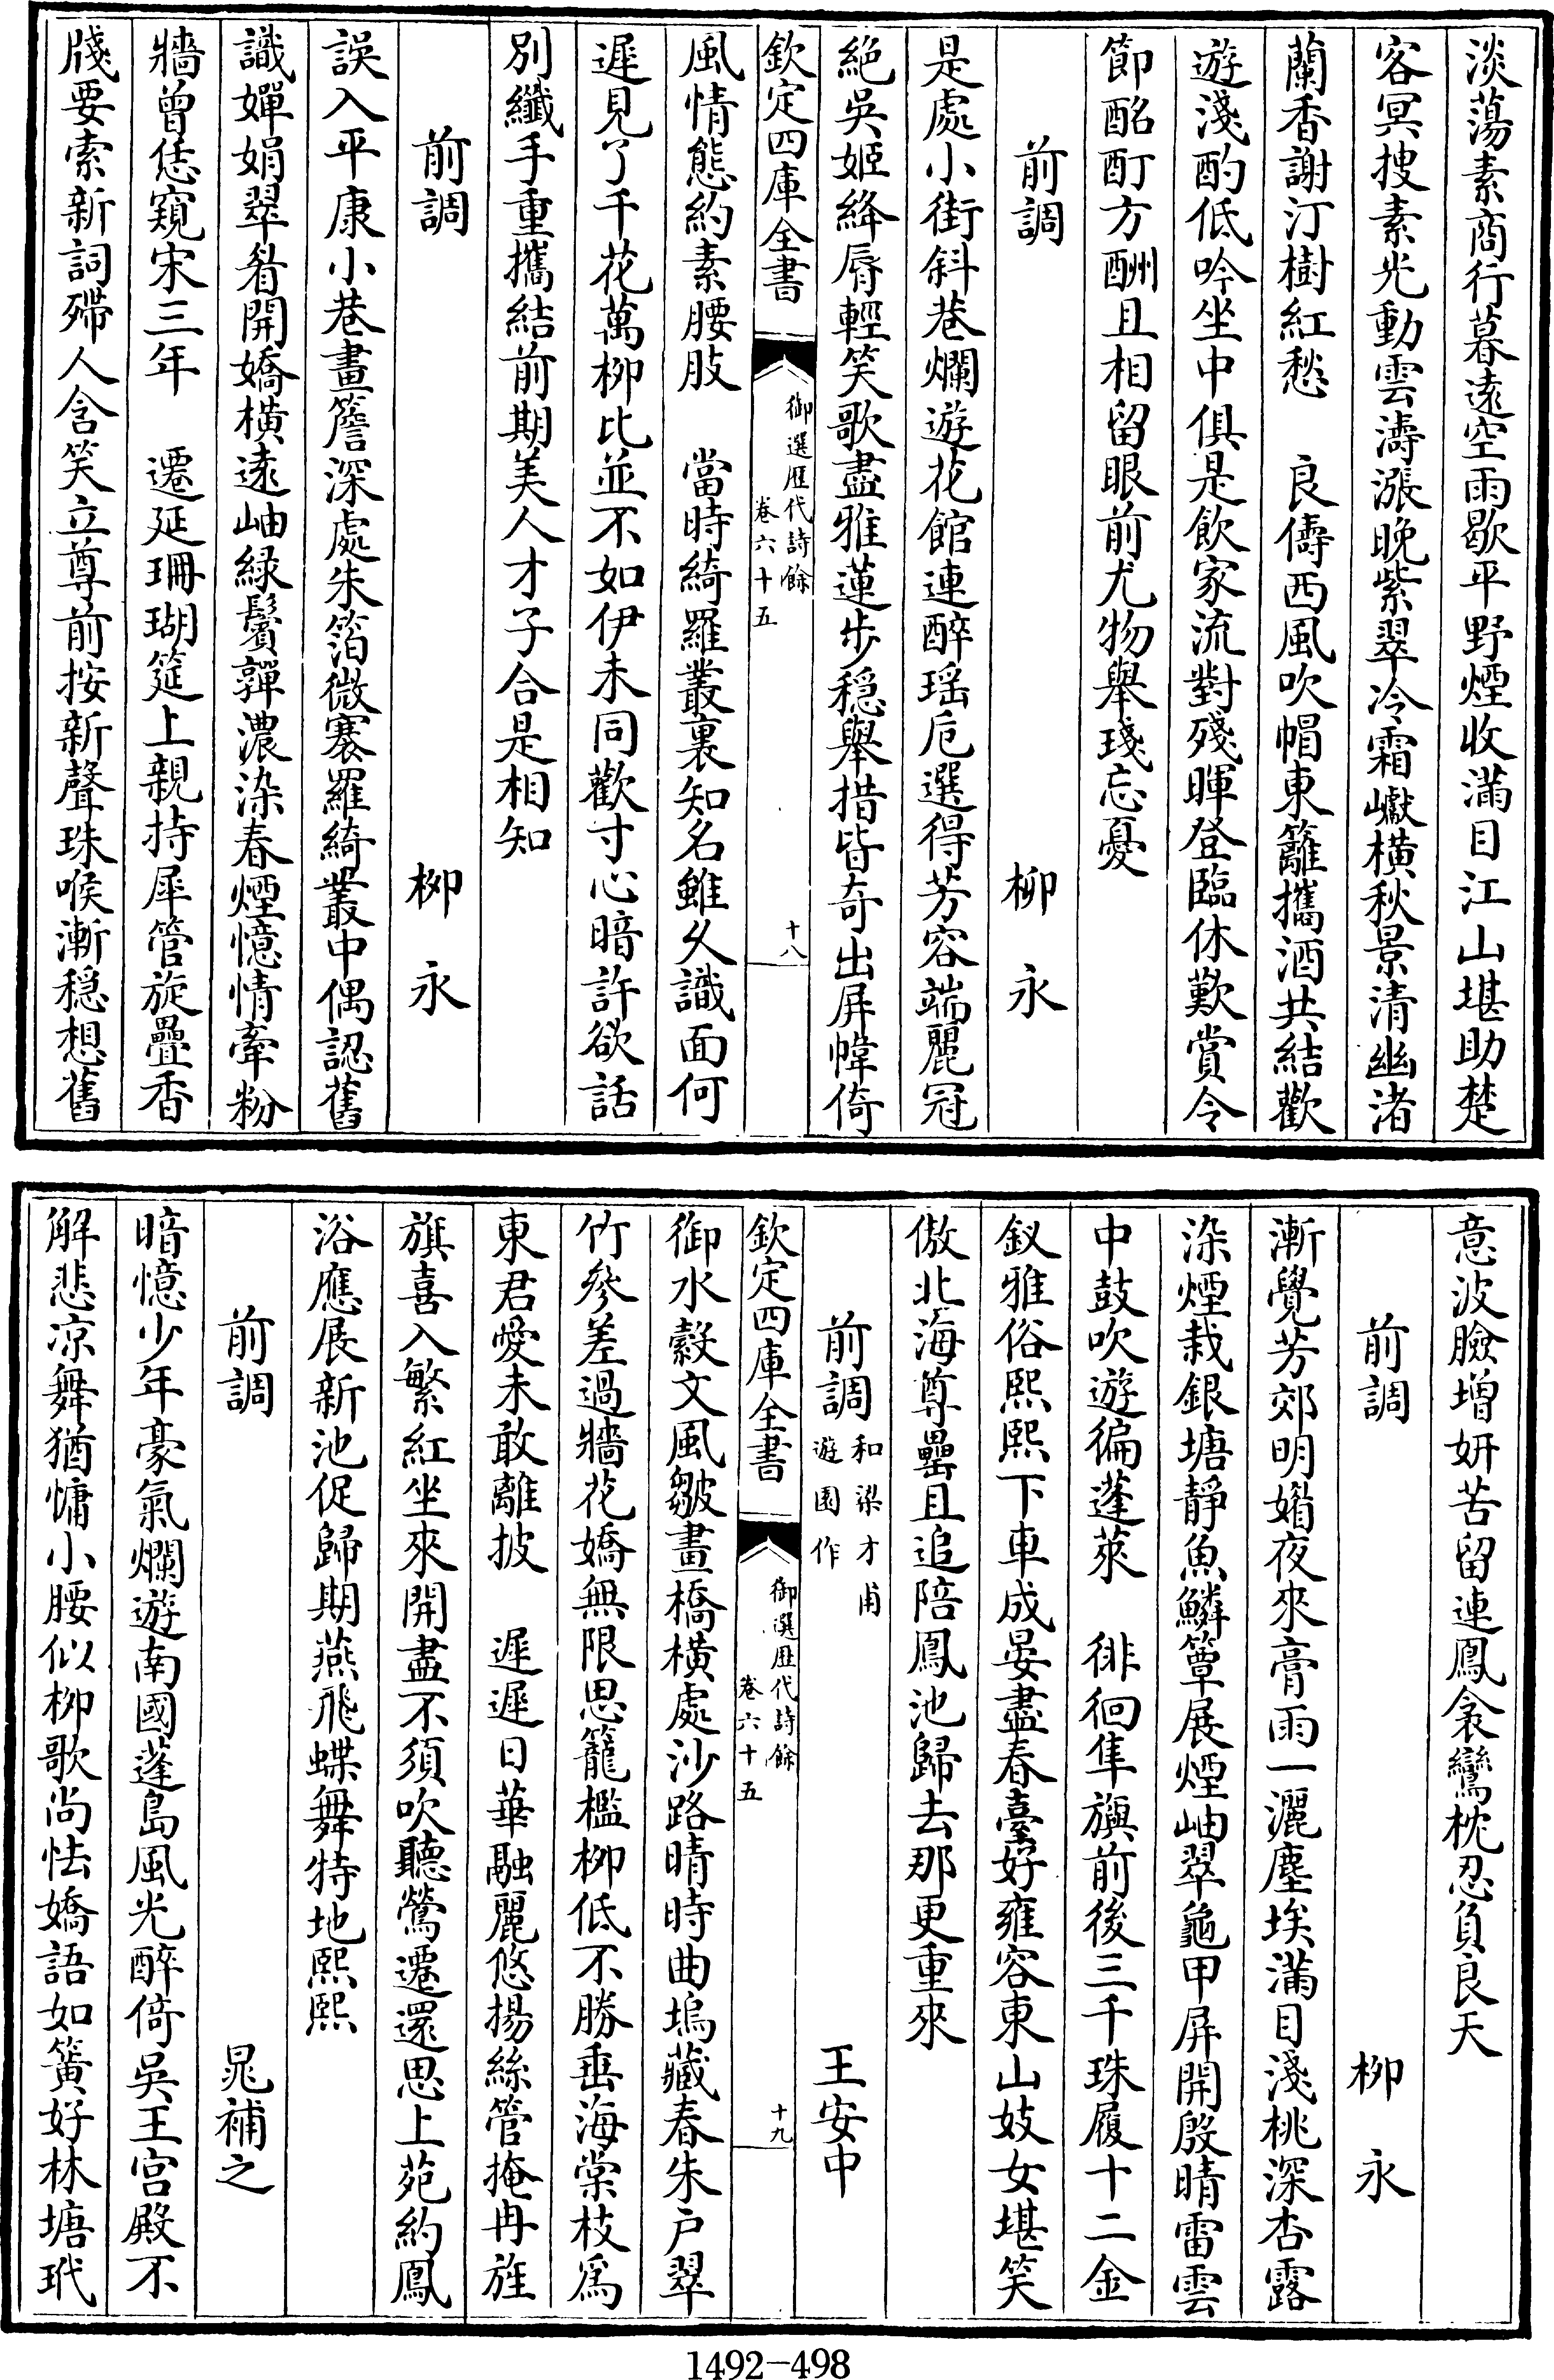 淡蕩素商行暮遠空雨歇平野煙收滿目江山堪助楚
客冥搜素光動雲濤漲晚紫翠冷霜巘橫秋景清幽渚
蘭香謝汀樹紅愁　良儔西風吹帽東籬攜酒共結歡
遊淺酌低吟坐中俱是飲家流對殘暉登臨休歎賞令
節酩酊方酬且相留眼前尤物舉琖忘憂
前調　柳永
是處小街斜巷爛遊花館連醉瑤卮選得芳容端麗冠
絕吳姬絳脣輕笑歌盡雅蓮步穩舉措皆奇出屏幃倚
欽定四庫全書　御選歷代詩餘　卷六十五　十八
風情態約素腰肢　當時綺羅叢裏知名雖久識面何
遲見了千花萬柳比並不如伊未同歡寸心暗許欲話
別纖手重攜結前期美人才子合是相知
前調　柳永
誤入平康小巷畫簷深處朱箔微褰羅綺叢中偶認舊
識嬋娟翠眉開嬌橫遠岫綠鬢嚲濃染春煙憶情牽粉
牆曾恁窺宋三年　遷延珊瑚筵上親持犀管旋疊香
牋要索新詞殢人含笑立尊前按新聲珠喉漸穩想舊
意波臉增妍苦留連鳳衾鸞枕忍負良天
前調　柳永
漸覺芳郊明媚夜來膏雨一灑塵埃滿目淺桃深杏露
染煙栽銀塘靜魚鱗簟展煙岫翠龜甲屏開殷晴雷雲
中鼓吹遊徧蓬萊　徘徊隼旟前後三千珠履十二金
釵雅俗熙熙下車成晏盡春臺好雍容東山妓女堪笑
傲北海尊罍且追陪鳳池歸去那更重來
前調　和梁才甫遊園作　王安中
欽定四庫全書　御選歷代詩餘　卷六十五　十九
御水縠文風皺畫橋橫處沙路晴時曲塢藏春朱戶翠
竹參差過牆花嬌無限思籠檻柳低不勝垂海棠枝爲
東君愛未敢離披　遲遲日華融麗悠揚絲管掩冉旌
旗喜入繁紅坐來開盡不須吹聽鶯遷還思上苑約鳳
浴應展新池促歸期燕飛蝶舞特地熙熙
前調　晁補之
暗憶少年豪氣爛遊南國蓬島風光醉倚吳王宮殿不
解悲凉舞猶慵小腰似柳歌尚怯嬌語如簧好林塘玳
1492-498